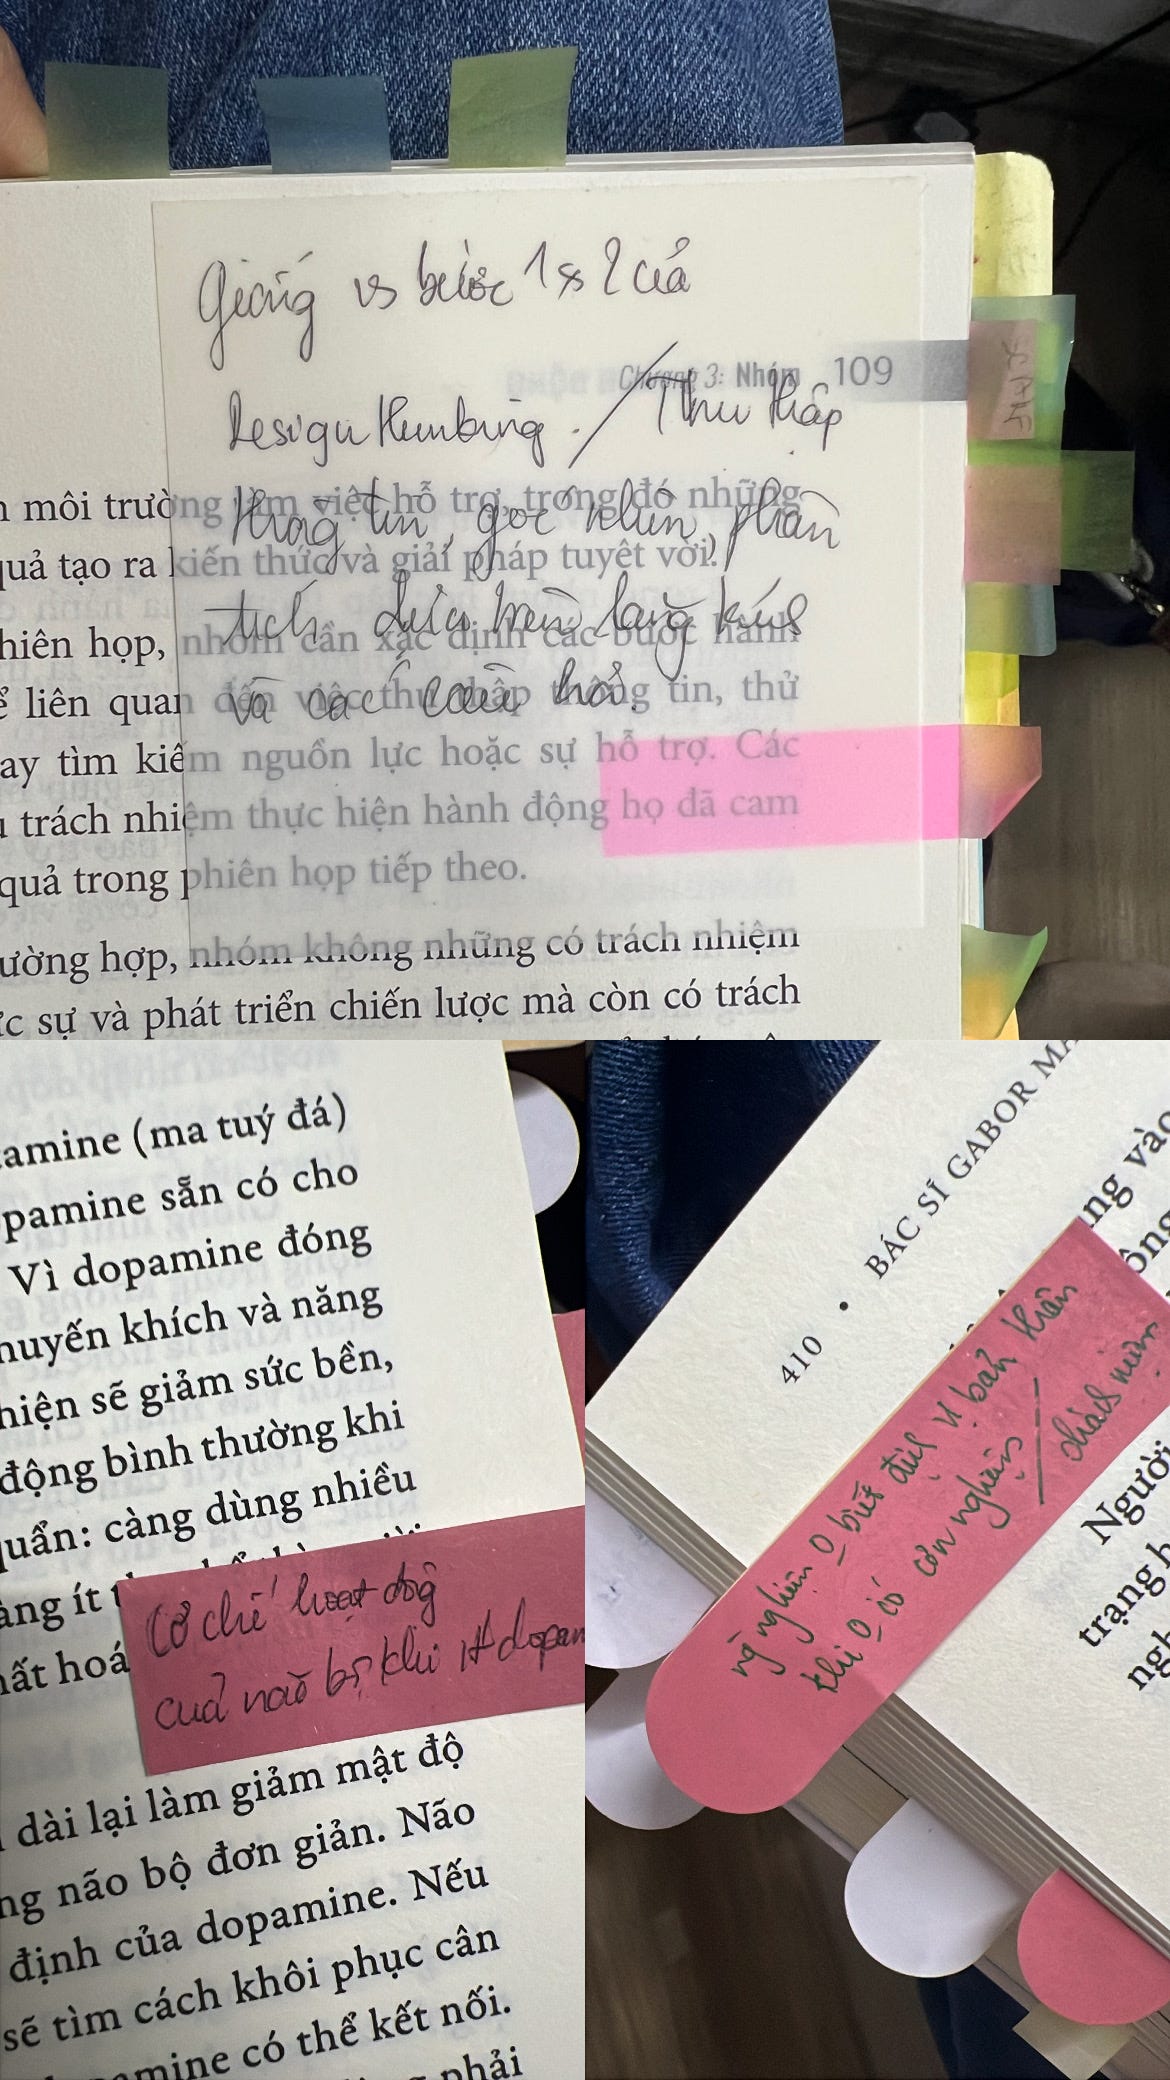 Giống vs bước 1 & 2 của
Chương 3: Nhóm 109
Design Thinking. / Thu thập
môi trường làm việc hỗ trợ, trong đó những
thông tin, góc nhìn, phân
quả tạo ra kiến thức và giải pháp tuyệt vời.
tích dựa trên lắng
hiên họp, nhóm cần xác định các bước hành
và các câu hỏi.
ể liên quan đến việc thu thập thông tin, thử
ay tìm kiếm nguồn lực hoặc sự hỗ trợ. Các
trách nhiệm thực hiện hành động họ đã cam
quả trong phiên họp tiếp theo.
ường hợp, nhóm không những có trách nhiệm
ực sự và phát triển chiến lược mà còn có trách
amine (ma tuý đá)
pamine sẵn có cho
Vì dopamine đóng
huyến khích và năng
hiện sẽ giảm sức bền,
động bình thường khi
uẩn: càng dùng nhiều
àng ít
hất hoá
Cơ chế hoạt động
của não bộ khi ít dopam
dài lại làm giảm mật độ
ng não bộ đơn giản. Não
định của dopamine. Nếu
sẽ tìm cách khôi phục cân
amine có thể kết nối.
phải
410 • BÁC SĨ GABOR MA
ng vào
ông
ng nghiện 0 biết đc vị bản thân
khi 0 có cơn nghiện / chánh niệm
Người
trạng h
ngh